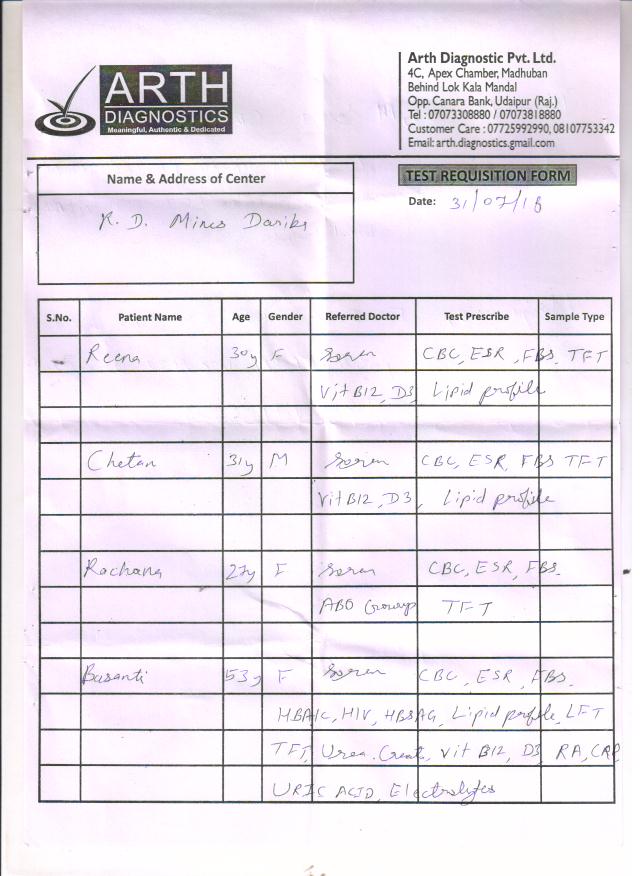 ARTH
DIAGNOSTICS
Meaningful, Authentic & Dedicated
Arth Diagnostic Pvt. Ltd.
4C, Apex Chamber, Madhuban
Behind Lok Kala Mandal
Opp. Canara Bank, Udaipur (Raj.)
Tel : 07073308880 / 07073818880
Customer Care : 07725992990, 08107753342
Email: arth.diagnostics.gmail.com
Name & Address of Center
R. D. Mines Dariba
TEST REQUISITION FORM
Date: 31/07/18
S.No. Patient Name Age Gender Referred Doctor Test Prescribe Sample Type
Reena 30y F Soren CBC, ESR, FBS, TFT
Vit B12, D3, Lipid profile
Chetan 31y M Soren CBC, ESR, FBS TFT
Vit B12, D3, Lipid profile
Rachana 27y F Soren CBC, ESR, FBS.
ABO Group TFT
Basanti 53y F Soren CBC, ESR, FBS.
HBA1C, HIV, HBSAG, Lipid profile, LFT
TFT, Urea. Creat, Vit B12, D3 RA,
URIC ACID, Electrolytes